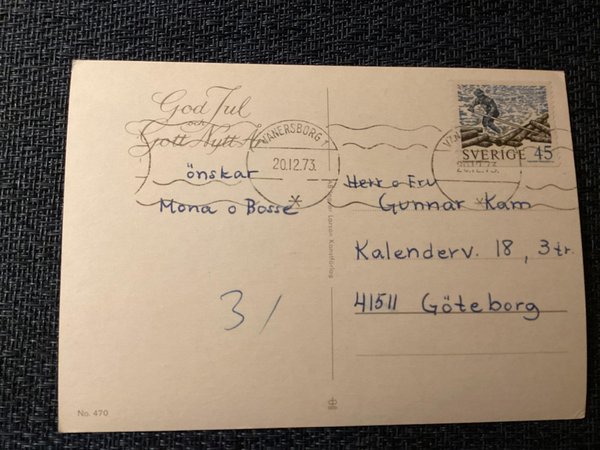 God Jul
och
Gott Nytt År
önskar
Mona o Bosse
3/
No. 470
VÄNERSBORG 1
20.12.73.
SVERIGE 45
20.12.73.
Herr o Fru
Gunnar Kam
Kalenderv. 18, 3 tr.
41511 Göteborg